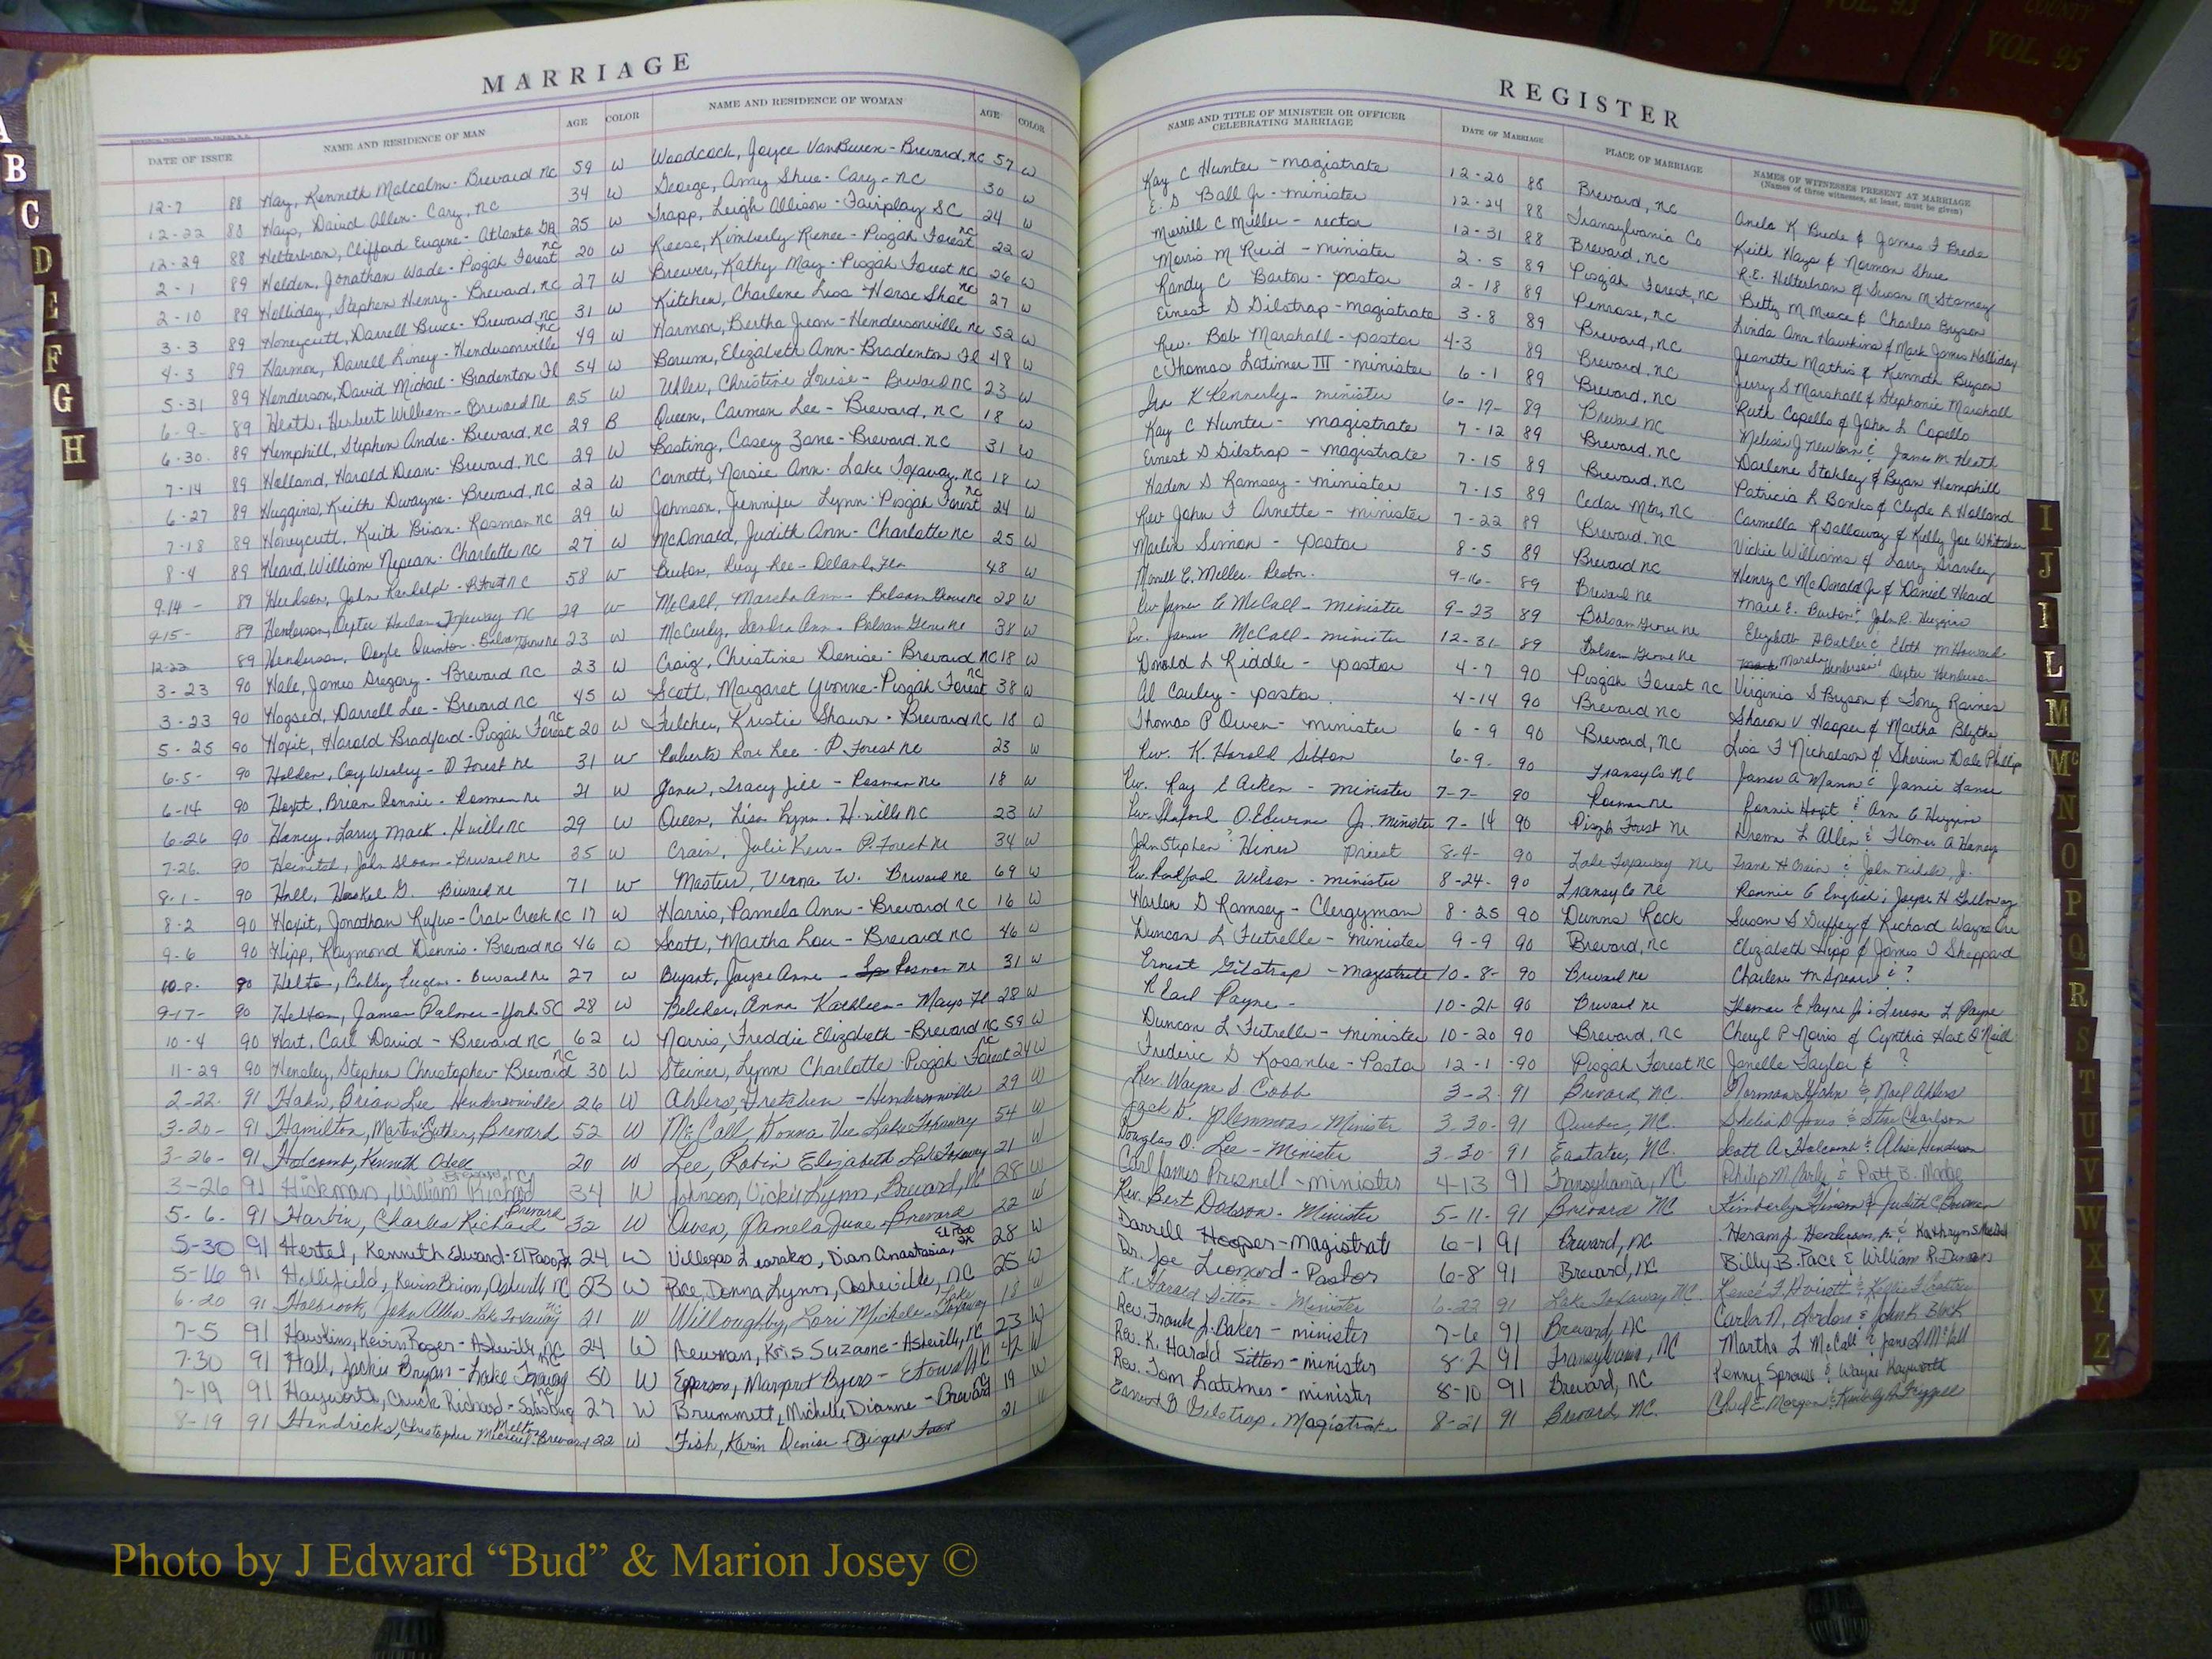 MARRIAGE
DATE OF ISSUE NAME AND RESIDENCE OF MAN AGE COLOR NAME AND RESIDENCE OF WOMAN AGE COLOR
12-7 88 Hay, Kenneth Malcolm - Brevard NC 59 W Woodcock, Joyce VanBuren - Brevard, NC 57 W
12-22 88 Hays, David Allen - Cary, NC 34 W George, Amy Shue - Cary - NC 30 W
12-29 88 Helterbran, Clifford Eugene - Atlanta GA 25 W Trapp, Leigh Allison - Fairplay SC 24 W
2-1 89 Holden, Jonathan Wade - Pisgah Forest NC 20 W Reese, Kimberly Renee - Pisgah Forest NC 22 W
2-10 89 Holliday, Stephen Henry - Brevard, NC 27 W Brewer, Kathy May - Pisgah Forest NC 26 W
3-3 89 Honeycutt, Darrell Bruce - Brevard, NC 31 W Kitchen, Charlene Lisa - Horse Shoe NC 27 W
4-3 89 Harmon, Darrell - Hendersonville NC 49 W Harmon, Bertha Jean - Hendersonville NC 52 W
5-31 89 Henderson, David Michael - Bradenton Fl 54 W Barum, Elizabeth Ann - Bradenton Fl 48 W
6-9- 89 Heath, Herbert William - Brevard NC 25 W Christine Louise - Brevard NC 23 W
6-30 89 Hemphill, Stephen Andre - Brevard, NC 29 B Queen, Carmen Lee - Brevard, NC 18 W
7-14 89 Holland, Harold Dean - Brevard, NC 29 W Basting, Casey Zane - Brevard, NC 31 W
6-27 89 Huggins, Keith Dwayne - Brevard, NC 22 W Cornett, Norsie Ann - Lake Toxaway, NC 18 W
7-18 89 Honeycutt, Keith Brian - Rosman NC 29 W Johnson, Jennifer Lynn - Pisgah Forest NC 24 W
8-4 89 Heard, William Nepean - Charlotte NC 27 W McDonald, Judith Ann - Charlotte NC 25 W
9-14- 89 John Randolph - P Forest NC 58 W Lucy Lee - Deland, Fla 48 W
9-15- 89 Henderson, Dexter Harlan - Toxaway NC 29 W McCall, Marsha Ann - Balsam Grove NC 28 W
12-22 89 Henderson, Doyle Quinton - Balsam Grove NC 23 W Sandra Ann - Balsam Grove NC 38 W
3-23 90 Hale, James Gregory - Brevard NC 23 W Craig, Christine Denise - Brevard NC 18 W
3-23 90 Hogsed, Darrell Lee - Brevard NC 45 W Scott, Margaret Yvonne - Pisgah Forest NC 38 W
5-25 90 Hoxit, Harold Bradford - Pisgah Forest NC 20 W Fulcher, Kristie Shawn - Brevard NC 18 W
6-5- 90 Holden, Coy Wesley - P Forest NC 31 W Roberts Lori Lee - P. Forest NC 23 W
6-14 90 Hoxit, Brian Ronnie - Rosman NC 21 W Jones, Tracy Jill - Rosman NC 18 W
6-26 90 Haney, Larry Mack - H'ville NC 29 W Queen, Lisa Lynn - H'ville NC 23 W
7-26 90 John Sloan - Brevard NC 35 W Crain, Julie Kerr - P. Forest NC 34 W
8-1- 90 Hall, Haskel G. Brevard NC 71 W Masters, Verna W. Brevard NC 69 W
8-2 90 Hoxit, Jonathan Rufus - Crab Creek NC 17 W Harris, Pamela Ann - Brevard NC 16 W
9-6 90 Hipp, Raymond Dennis - Brevard NC 46 W Scott, Martha Lou - Brevard NC 46 W
10-8- 90 Helton, Bobby Eugene - Brevard NC 27 W Bryant, Joyce Anne - Rosman NC 31 W
9-17- 90 Helton, James Palmer - York SC 28 W Belcher, Anna Kathleen - Mayo Fl 28 W
10-4 90 Hart, Carl David - Brevard NC 62 W Norris, Freddie Elizabeth - Brevard NC 59 W
11-29 90 Hensley, Stephen Christopher - Brevard NC 30 W Steiner, Lynn Charlotte - Pisgah Forest NC 24 W
2-22- 91 Hahn, Brian Lee Hendersonville 26 W Ahlers, Gretchen - Hendersonville 29 W
3-20- 91 Hamilton, Martin Luther, Brevard 52 W McCall, Donna Vee Lake Toxaway 54 W
3-26- 91 Holcomb, Kenneth Odell 20 W Lee, Robin Elizabeth Lake Toxaway 21 W
3-26 91 Hickman, William Richard Brevard, NC 34 W Johnson, Vickie Lynn, Brevard, NC 28 W
5-6- 91 Harbin, Charles Richard Brevard 32 W Owen, Pamela June - Brevard 22 W
5-30 91 Hertel, Kenneth Edward - El Paso, Tx 24 W Villegas Dian Anastasia, El Paso TX 28 W
5-16 91 Hollifield, Kevin Brian, Asheville NC 23 W Pace, Donna Lynn, Asheville, NC 25 W
6-20 91 Holbrook, John Allen - Lake Toxaway NC 21 W Willoughby, Lori Michele - Lake Toxaway 18 W
7-5 91 Hawkins, Kevin Roger - Asheville, NC 24 W Newman, Kris Suzanne - Asheville, NC 23 W
7-30 91 Hall, Jackie Bryan - Lake Toxaway NC 50 W Epperson, Margaret Byers - Etowah NC 42 W
7-19 91 Hayworth, Chuck Richard - Salisbury NC 27 W Brummett, Michelle Dianne - Brevard NC 19 W
8-19 91 Hendricks, Christopher Michael Melton - Brevard 22 W Fish, Karin Denise - Pisgah Forest 21 W
REGISTER
NAME AND TITLE OF MINISTER OR OFFICER CELEBRATING MARRIAGE DATE OF MARRIAGE PLACE OF MARRIAGE NAMES OF WITNESSES PRESENT AT MARRIAGE
(Names of three witnesses, at least, must be given)
Kay C Hunter - magistrate 12-20 88 Brevard, NC Anela K Brede & James F Brede
E. D Ball Jr - minister 12-24 88 Transylvania Co Keith Hays & Norman Shue
Merrill C Miller - rector 12-31 88 Brevard, NC R.E. Helterbran & Susan M Stamey
Morris M Reid - minister 2-5 89 Pisgah Forest, NC Betty M Meece & Charles Bryson
Randy C Barton - pastor 2-18 89 Penrose, NC Linda Ann Hawkins & Mark James Holliday
Ernest G Gilstrap - magistrate 3-8 89 Brevard, NC Jeanette Mathis & Kenneth Bryson
Rev. Bob Marshall - pastor 4-3 89 Brevard, NC Jerry S Marshall & Stephanie Marshall
C Thomas Latimer III - minister 6-1 89 Brevard, NC Ruth Capello & John L Capello
Ira K Kennerly - minister 6-17- 89 Brevard NC Melissa J Newborn & James M Heath
Kay C Hunter - magistrate 7-12 89 Brevard, NC Darlene Stokley & Bryan Hemphill
Ernest G Gilstrap - magistrate 7-15 89 Brevard, NC Patricia R Banks & Clyde R Holland
Harlon D Ramsey - minister 7-15 89 Cedar Mtn, NC Carmella R Dalloway & Kelly Joe Whitaker
Rev John F Arnette - minister 7-22 89 Brevard, NC Vickie Williams & Larry
Marlin Simon - pastor 8-5 89 Brevard NC Henry C McDonald Jr & Daniel Heard
Merrill C. Miller - Rector 9-16- 89 Brevard NC John R.
Rev James E McCall - minister 9-23 89 Balsam Grove NC Elizabeth A Butler & Edith M
Rev. James McCall - minister 12-31 89 Balsam Grove NC Marsha Henderson & Dexter Henderson
Donald L Riddle - pastor 4-7 90 Pisgah Forest NC Virginia S Bryson & Tony Raines
Al Cauley - pastor 4-14 90 Brevard NC Sharon V Hooper & Martha Blythe
Thomas P Owen - minister 6-9 90 Brevard, NC Lisa F Nicholson & Dale Phillips
Rev. K. Harold Sitton 6-9- 90 Transy Co NC James A Mann & Jamie Lance
Rev. Ray E Aiken - minister 7-7- 90 Rosman NC Ronnie Hoxit & Ann G Huggins
Rev. Jr. Minister 7-14 90 Pisgah Forest NC L Allen & Thomas A Haney
John Stephen Hines Priest 8-4- 90 Lake Toxaway NC Frank H Crain &
Rev. Radford Wilson - minister 8-24- 90 Transy Co NC Ronnie G English;
Harlon D Ramsey - Clergyman 8-25 90 Dunns Rock Susan S Duffey & Richard Wayne Orr
Duncan L Futrelle - minister 9-9 90 Brevard, NC Elizabeth Hipp & James D Sheppard
Ernest Gilstrap - magistrate 10-8- 90 Brevard NC Charlene M Spears & ?
R Earl Payne - 10-21- 90 Brevard NC Thomas E Payne Jr & Teresa L Payne
Duncan L Futrelle - minister 10-20 90 Brevard, NC Cheryl P Norris & Cynthia Hart O'Neill
Frederic D - Pastor 12-1 -90 Pisgah Forest NC Janelle Taylor & ?
Rev. Wayne S Cobb 3-2- 91 Brevard, NC. Norman Hahn & Noel Ahlers
Jack D. Plemmons - Minister 3-30- 91 Quebec, NC. Shelia D Jones & Steve Charlson
Douglas O. Lee - Minister 3-30- 91 Eastatoe, NC. Scott A. Holcomb & Alisa Henderson
Carl James Presnell - minister 4-13 91 Transylvania, NC Philip M. & Patt B.
Rev. Bert Dotson - Minister 5-11- 91 Brevard NC Kimberly & Judith C.
Darrell Hooper - magistrate 6-1 91 Brevard, NC Hiram J. Henderson, Jr. & Kathryn S
Dr. Joe Leonard - Pastor 6-8 91 Brevard, NC Billy B. Pace & William R.
K. Harold Sitton - Minister 6-22 91 Lake Toxaway NC.
Rev. Frank J. Baker - minister 7-6 91 Brevard, NC Carla N. Gordon & John K. Black
Rev. K. Harold Sitton - minister 8-2 91 Transylvania, NC Martha L McCall &
Rev. Tom Latimer - minister 8-10 91 Brevard, NC Penny Sprouse & Wayne Hayworth
Earnest G Gilstrap - Magistrate 8-21 91 Brevard NC.
A
B
C
D
E
F
G
H
I
J
L
M
Mc
N
O
P
Q
R
S
T
U
V
W
X
Y
Z
VOL. 93
COUNTY
VOL. 95
Photo by J Edward “Bud” & Marion Josey ©